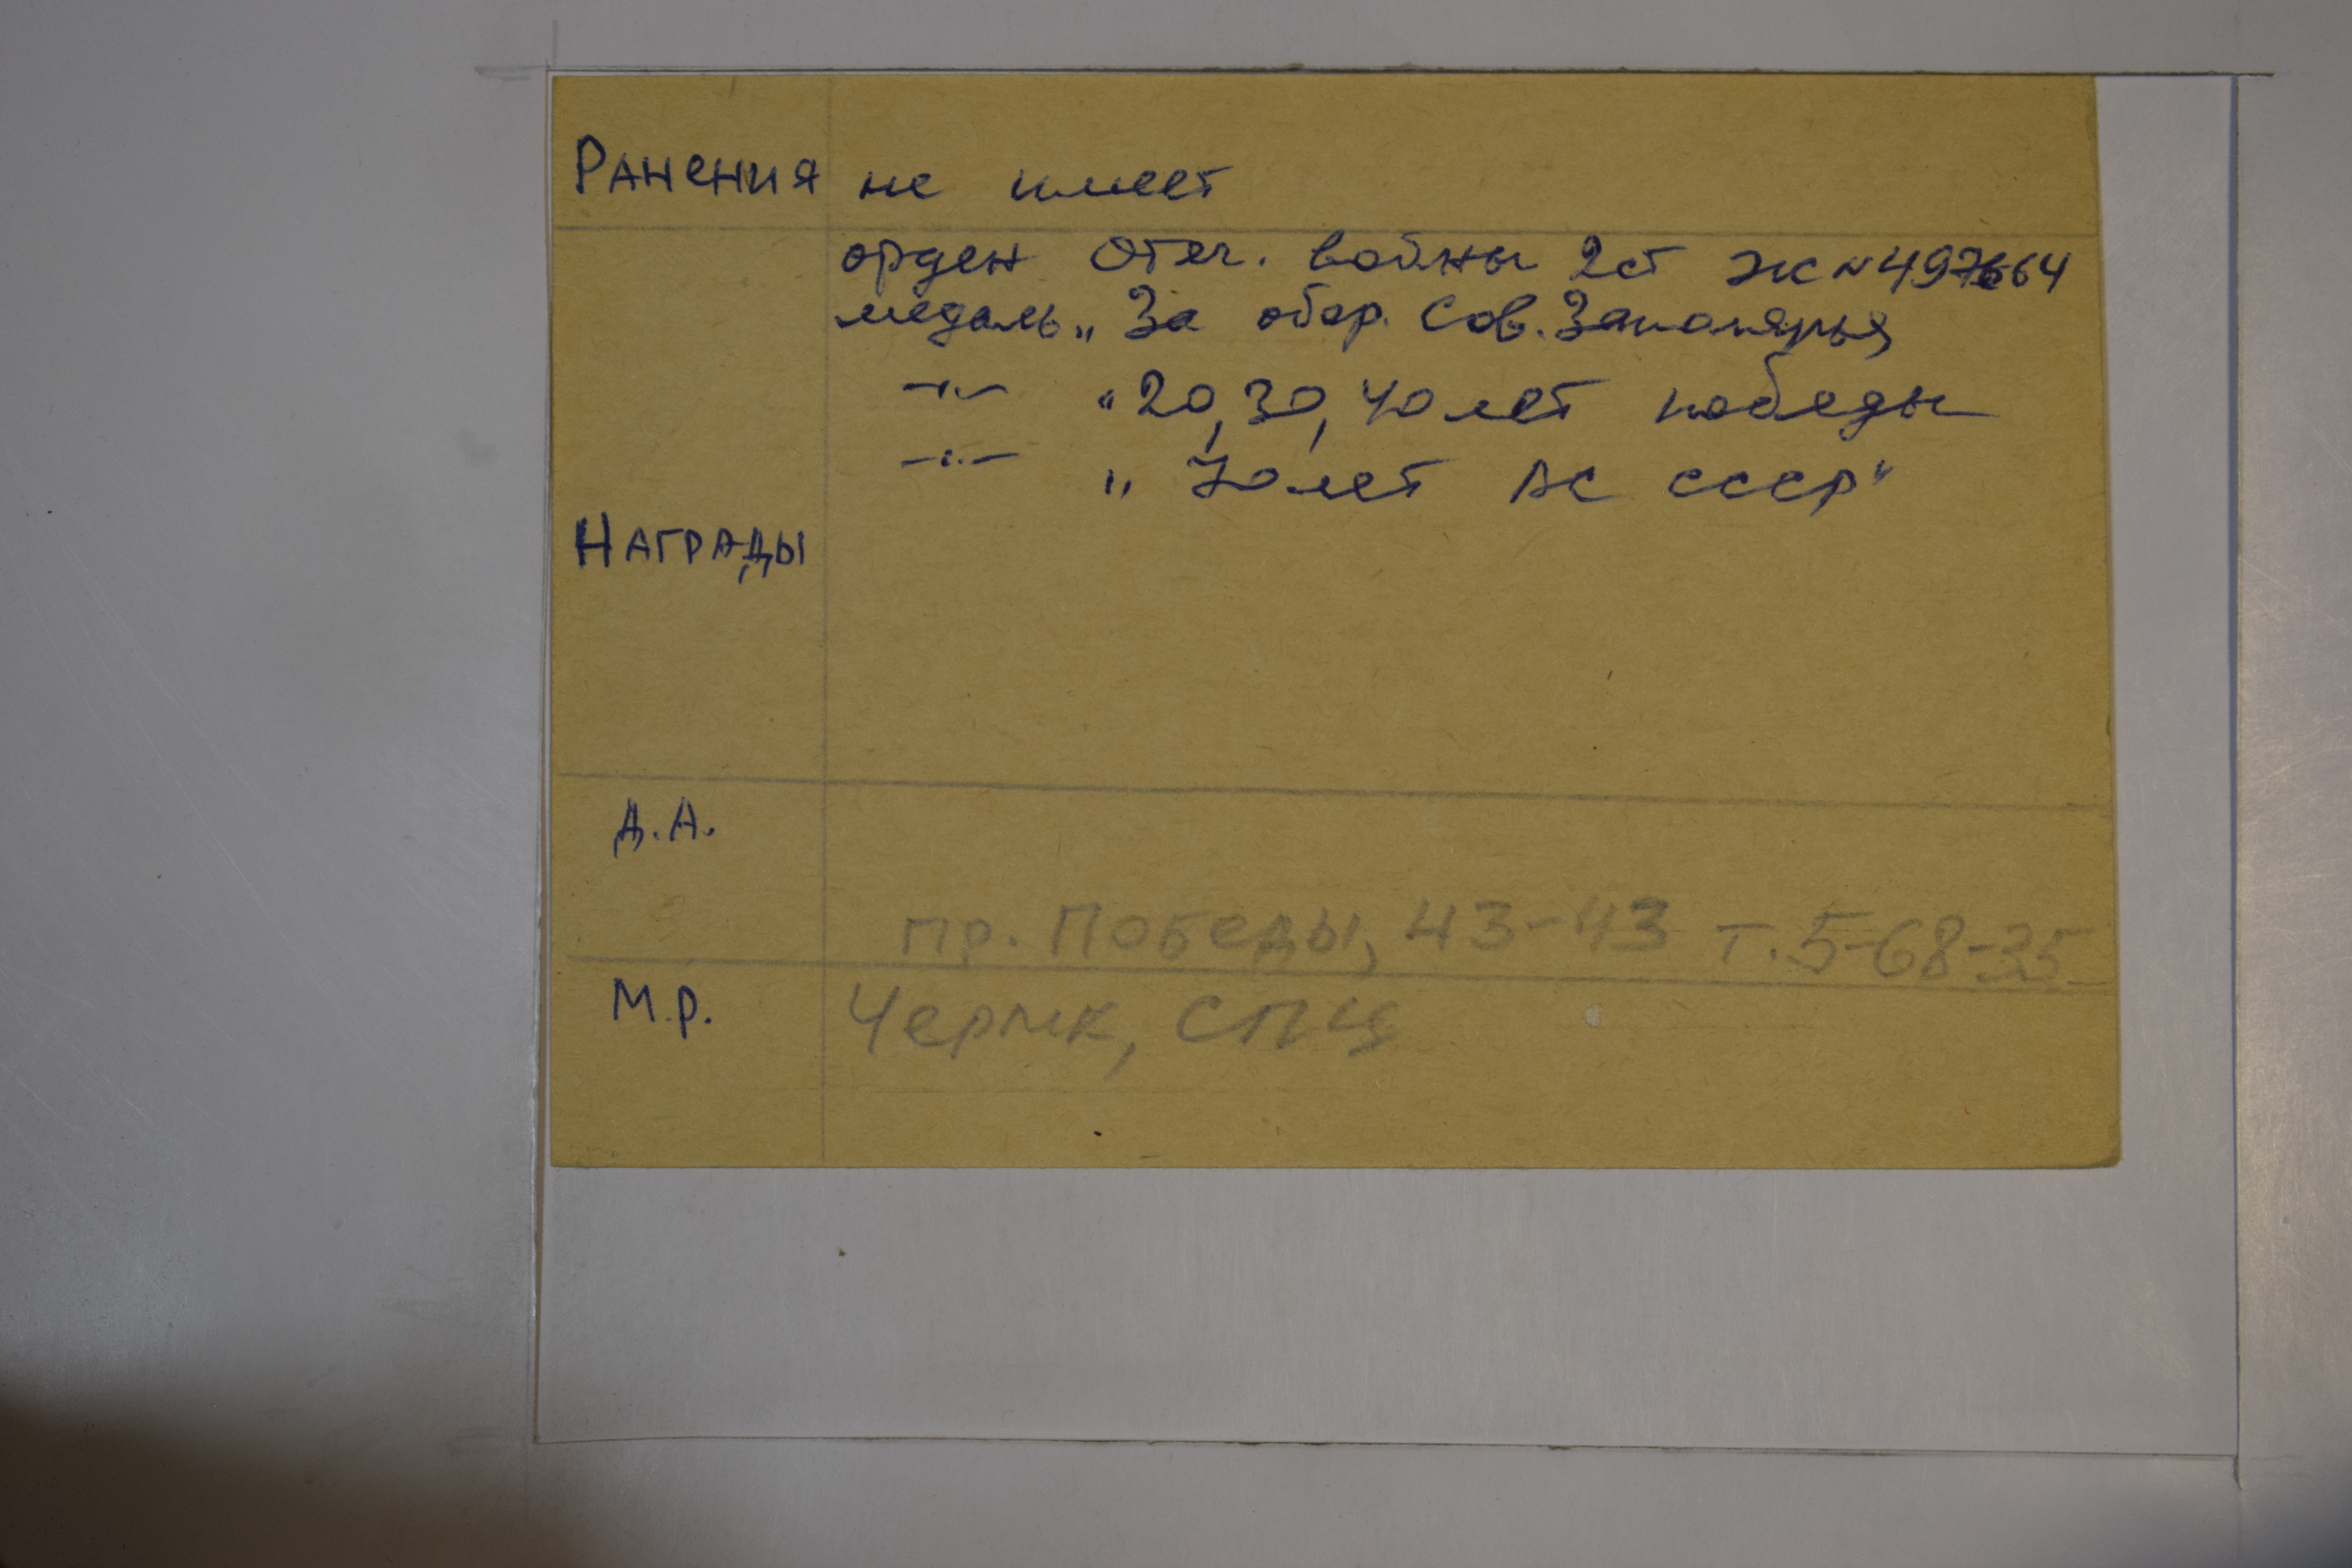 Ранения не имеет
орден Отеч. войны 2ст Ж №
медаль „За обор. Сов. Заполярья
-"- "20, 30, 40 лет победы
-"- „70 лет ВС СССР"
Награды
Д.А.
пр. Победы, 43-43 т. 5-68-35
М.Р. ЧерМК, СПЦ